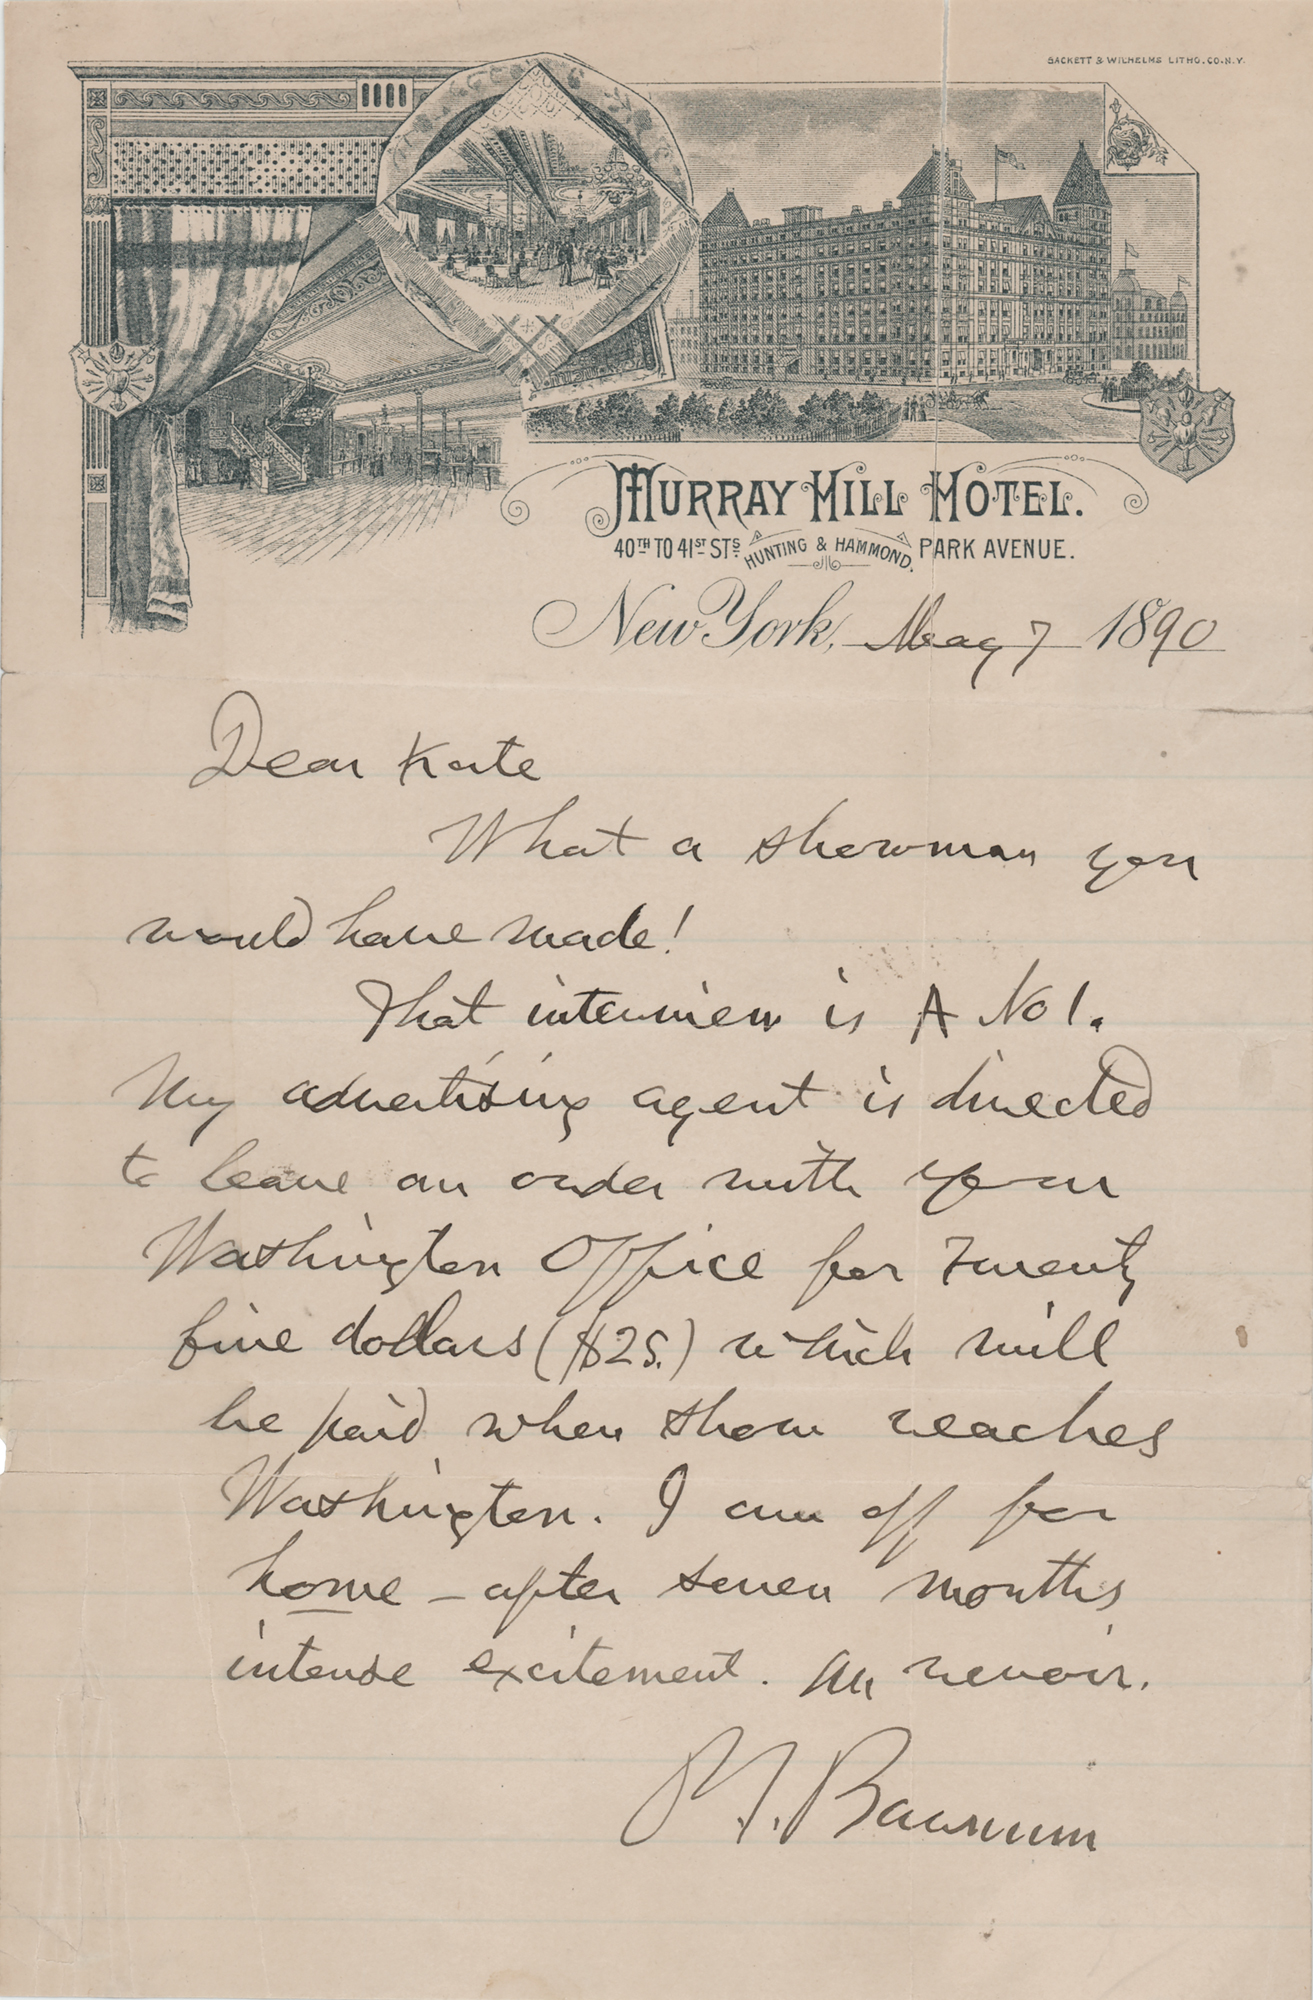 SACKETT & WILHELMS LITHO. CO. N.Y.
MURRAY HILL HOTEL.
40TH TO 41ST STS. HUNTING & HAMMOND. PARK AVENUE.
New York, May 7 1890
Dear Kate
What a showman you
would have made!
That interview is A No 1.
My advertising agent is directed
to leave an order with your
Washington Office for Twenty
five dollars ($25.) which will
be paid when show reaches
Washington. I am off for
home – after seven months
intense excitement. Au revoir.
P. T. Barnum